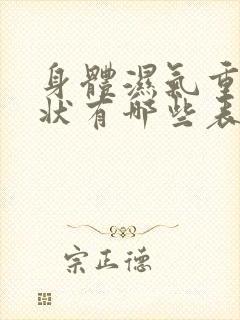 身體濕氣重
狀有哪些表
宗正德